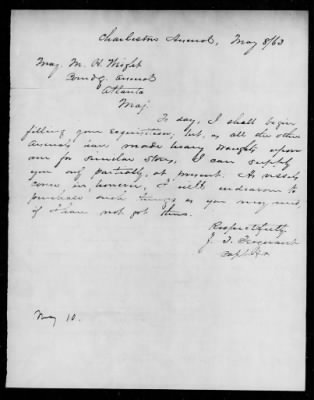 Charleston Arsenal, May 8/63
Maj. M. H. Wright
Comdg. Arsenal
Atlanta
Maj.
To day, I shall begin
filling your requisition, but, as all the other
Arsenals have made heavy draughts upon
me for similar stores, I can supply
you only partially, at present. As vessels
come in, however, I will endeavor to
purchase such things as you may need,
if I have not got them.
Respectfully
J. T.
Capt
May 10.